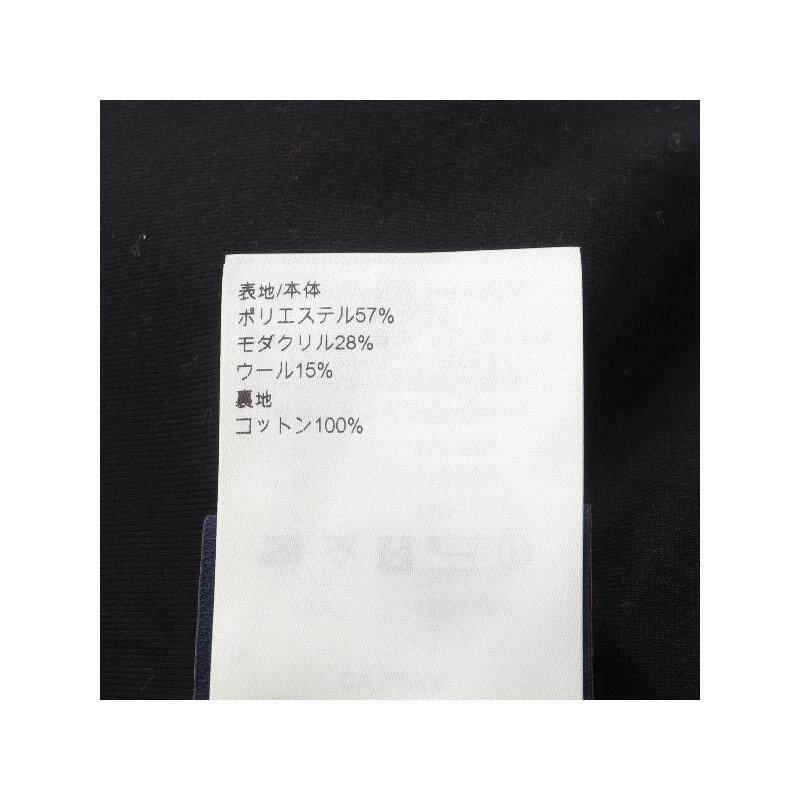 表地/本体
ポリエステル57%
モダクリル28%
ウール15%
裏地
コットン100%